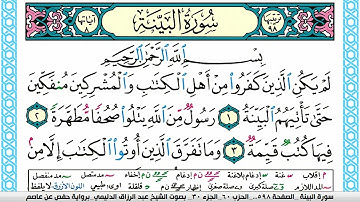 ترتيبها ٩٨
سُورَةُ البَيِّنَةِ
آياتها ٨
بِسْمِ اللَّهِ الرَّحْمَٰنِ الرَّحِيمِ
لَمْ يَكُنِ الَّذِينَ كَفَرُوا مِنْ أَهْلِ الْكِتَابِ وَالْمُشْرِكِينَ مُنفَكِّينَ
حَتَّىٰ تَأْتِيَهُمُ الْبَيِّنَةُ ١ رَسُولٌ مِّنَ اللَّهِ يَتْلُو صُحُفًا مُّطَهَّرَةً ٢
فِيهَا كُتُبٌ قَيِّمَةٌ ٣ وَمَا تَفَرَّقَ الَّذِينَ أُوتُوا الْكِتَابَ إِلَّا مِن
سورة البينة الصفحة ٥٩٨ الجزء ٣٠ بصوت الشيخ عبد الرزاق الدليمي برواية حفص عن عاصم